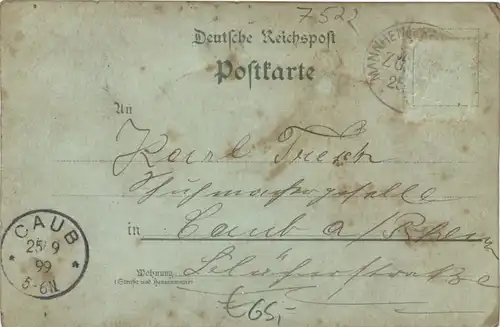 7522
Deutsche Reichspost
Postkarte
MANNHEIM
An
Karl Tresch
Schuhmachergeselle
in Caub a/Rhein
Wohnung
(Straße und Hausnummer)
Blücherstraße
CAUB
25/9
99
5-6N
€65,-